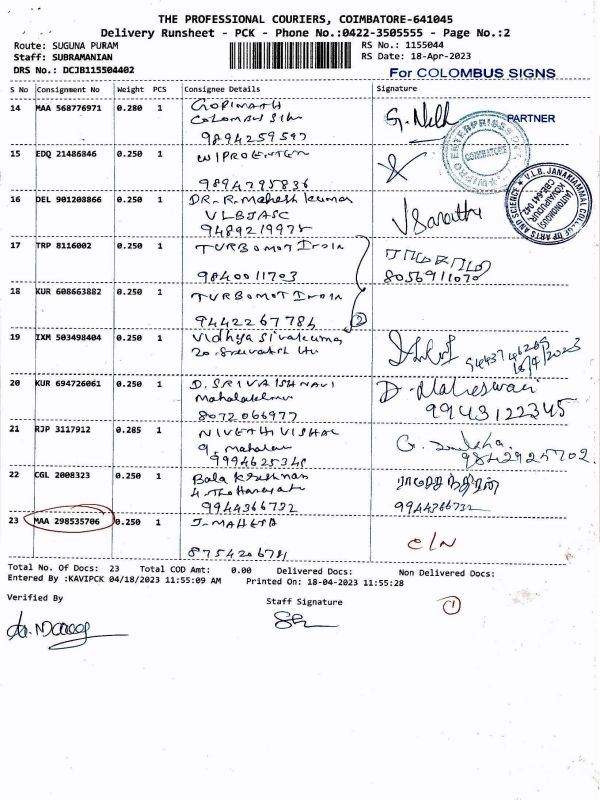 THE PROFESSIONAL COURIERS, COIMBATORE-641045
Delivery Runsheet - PCK - Phone No.:0422-3505555 - Page No.:2
Route: SUGUNA PURAM
RS No.: 1155044
Staff: SUBRAMANIAN
RS Date: 18-Apr-2023
DRS No.: DCJB115504402
For COLOMBUS SIGNS
S No Consignment No Weight PCS Consignee Details Signature
14 MAA 568776971 0.280 1 GOPINATH
COLOMBUS Sign
PARTNER
9894259597
15 EDQ 21486846 0.250 1 WIPRO ENTER
COIMBATORE
9894795836
16 DEL 901208866 0.250 1 DR. R. Mahesh kumar
VLBJASC
9489219975
17 TRP 8116002 0.250 1 TURBOMOT India
9840011703 8056911070
18 KUR 608663882 0.250 1 TURBOMOT India
9442267784 2
19 IXM 503498404 0.250 1 Vidhya Sivakumar
20 KUR 694726061 0.250 1 D. SRIVAISHNAVI D. Maheswari
Mahalakshmi
8072066977 9943122345
21 RJP 3117912 0.285 1 NIVETHI VISHAL
9994625348 9842925702
22 CGL 2008323 0.250 1 Bala Krishnan
9944366732 9944366732
23 MAA 298535706 0.250 1 J. MAHETA
8754206781 C/N
Total No. Of Docs: 23 Total COD Amt: 0.00 Delivered Docs: Non Delivered Docs:
Entered By :KAVIPCK 04/18/2023 11:55:09 AM Printed On: 18-04-2023 11:55:28
Verified By Staff Signature 1